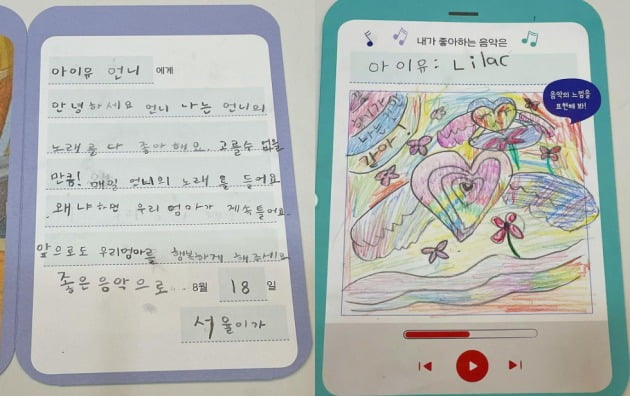 아이유 언니 에게
안녕하세요 언니 나는 언니의
노래를 다 좋아해요. 고를수 없을
만큼! 매일 언니의 노래를 들어요
왜냐하면 우리 엄마가 계속틀어요.
앞으로도 우리엄마를 행복하게 해주세요
좋은 음악으로.. 8월 18일
서율이가
내가 좋아하는 음악은
아이유: Lilac
음악의 느낌을
표현해 봐!
나는